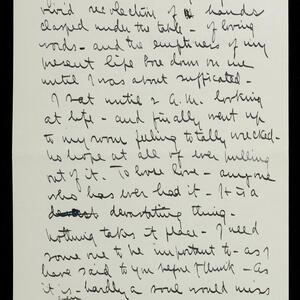 vivid recollection of hands
clasped under the table - of loving
words - and the emptiness of my
present life bore down on me
until I was about suffocated -
I sat until 2 A.M. looking
at life - and finally went up
to my room feeling totally wrecked -
no hope at all of ever pulling
out of it. To lose love - anyone
who has ever had it - It is a
devastating thing -
nothing takes its place - I need
some one to be important to - as I
have said to you before I think - As
it is - hardly a soul would miss